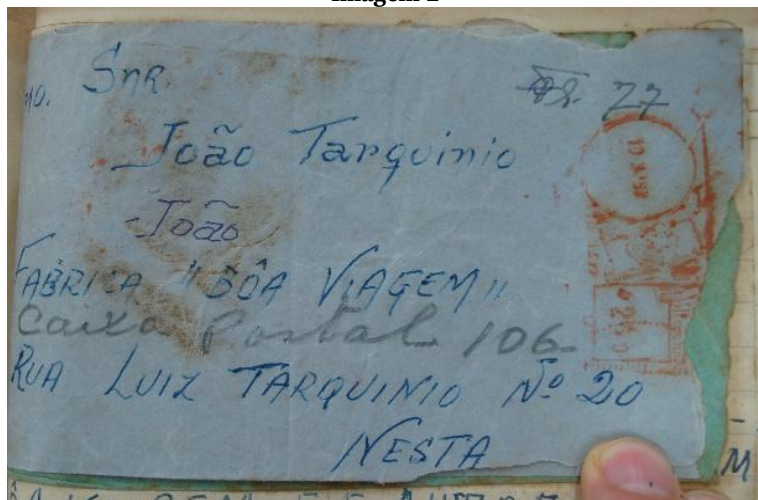 mo. Snr.
João Tarquinio
João
FABRICA "BÔA VIAGEM"
Caixa Postal 106-
RUA LUIZ TARQUINIO Nº 20
NESTA
M